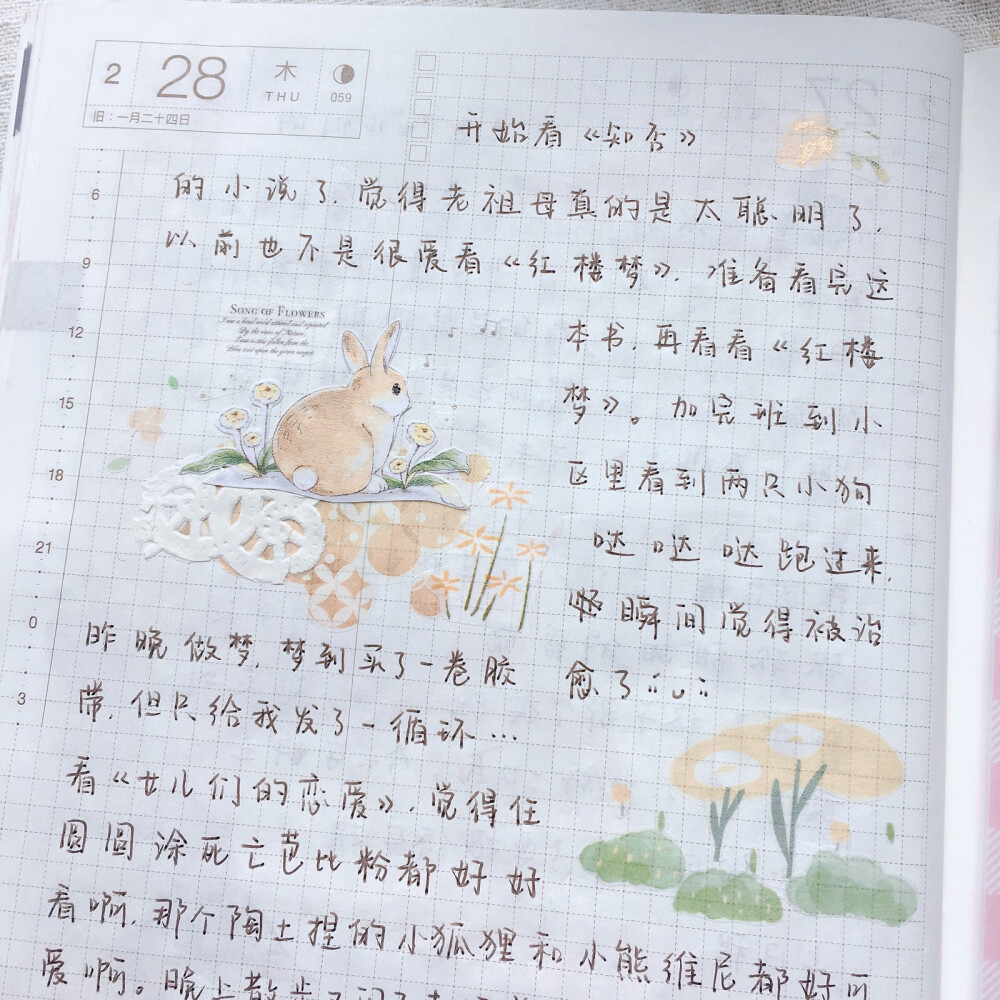 2 28 木 THU 059
旧：一月二十四日
开始看《知否》
的小说了，觉得老祖母真的是太聪明了，
以前也不是很爱看《红楼梦》，准备看完这
本书，再看看《红楼
梦》。加完班到小
区里看到两只小狗
哒哒哒跑过来，
瞬间觉得被治
愈了
6
9
12
15
18
21
0
3
SONG OF FLOWERS
昨晚做梦，梦到买了一卷胶
带，但只给我发了一循环…
看《女儿们的恋爱》，觉得任
圆圆涂死亡芭比粉都好好
看啊，那个陶土捏的小狐狸和小熊维尼都好可
爱啊。晚上散步